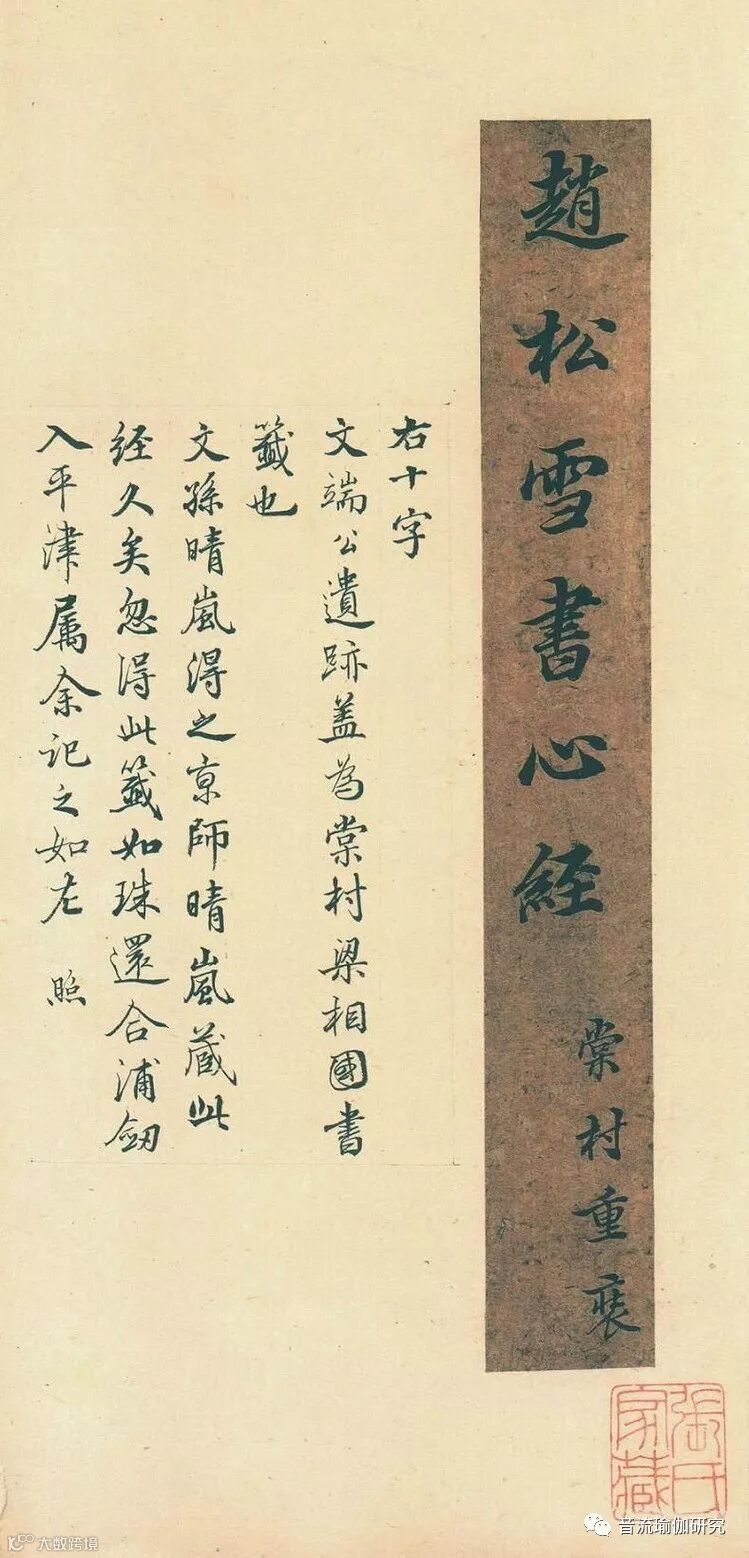 趙松雪書心経
棠村重裝
右十字
文端公遺跡盖為棠村梁相國書
籤也
文孫晴嵐得之京師晴嵐蔵此
経久矣忽得此籤如珠還合浦劔
入平津属余記之如左 照
張氏家藏
大数跨境
音流瑜伽研究